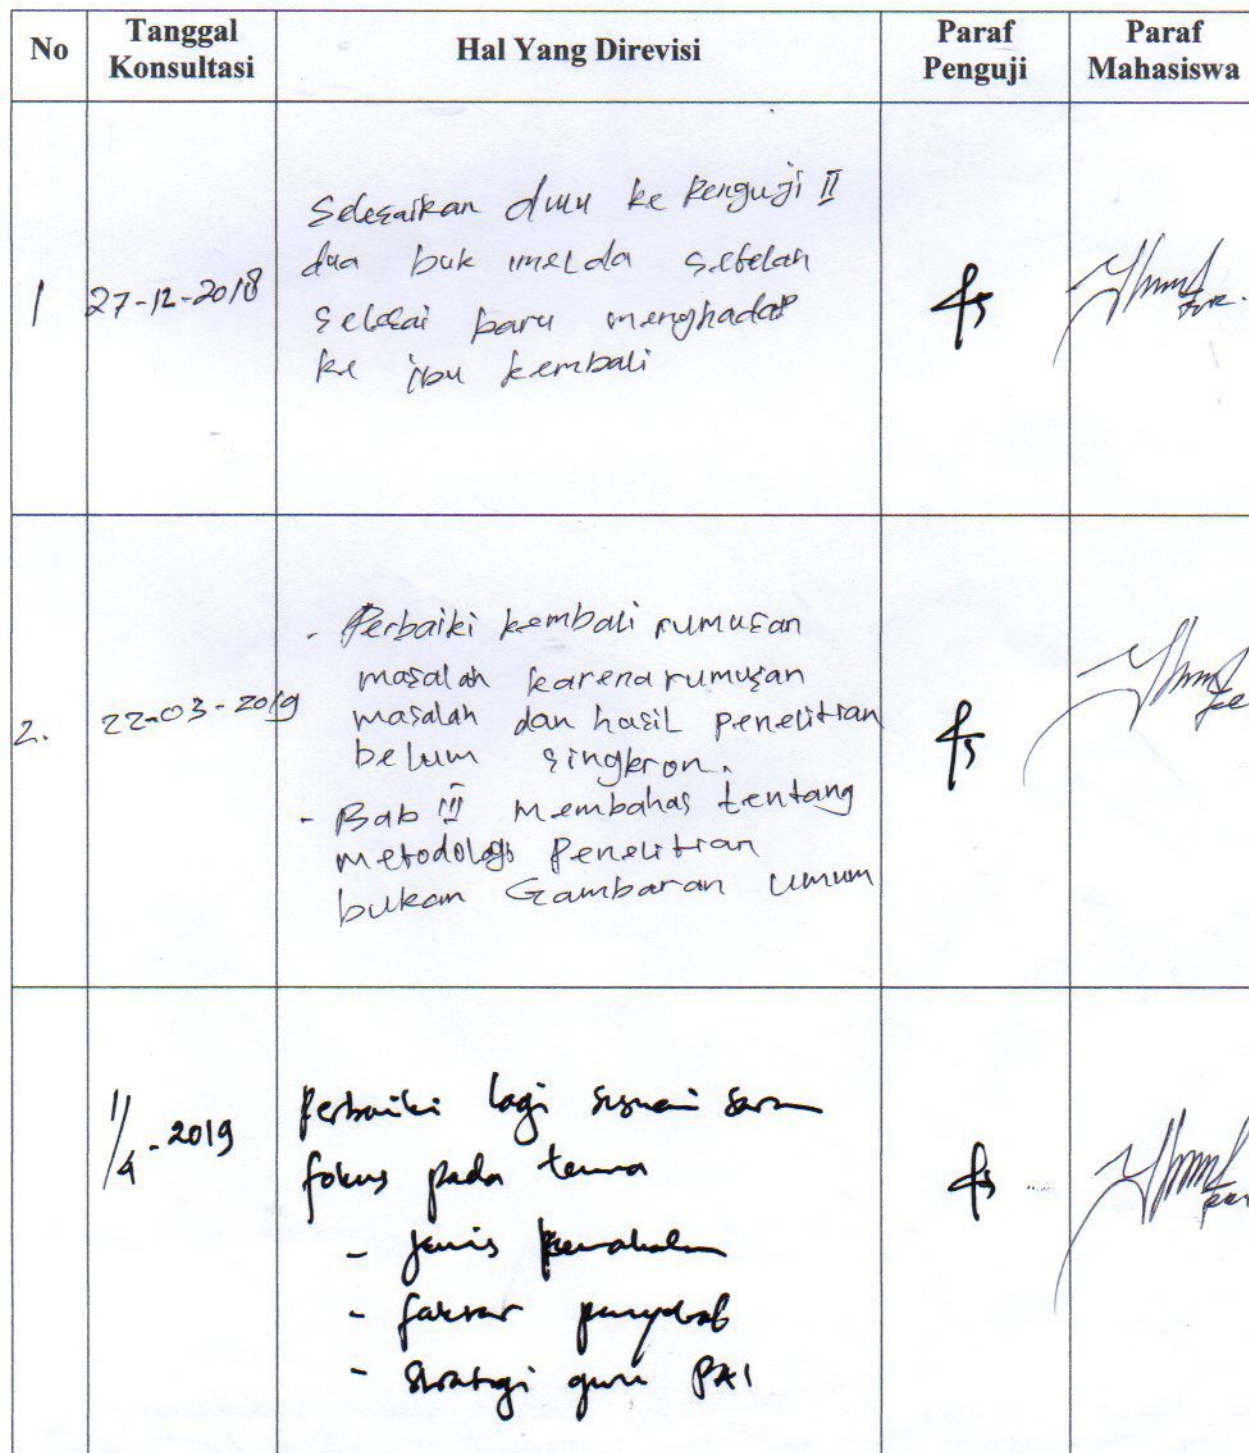 No
Tanggal Konsultasi
Hal Yang Direvisi
Paraf Penguji
Paraf Mahasiswa
1
27-12-2018
Selesaikan dulu ke Penguji II
dua buk imelda setelah
selesai baru menghadap
ke ibu kembali
2.
22-03-2019
- Perbaiki kembali rumusan
masalah karena rumusan
masalah dan hasil penelitian
belum singkron.
- Bab III membahas tentang
metodologi Penelitian
bukan Gambaran umum
1/4-2019
Perbaiki lagi sesuai saran
fokus pada tema
- jenis kenakalan
- faktor penyebab
- strategi guru PAI